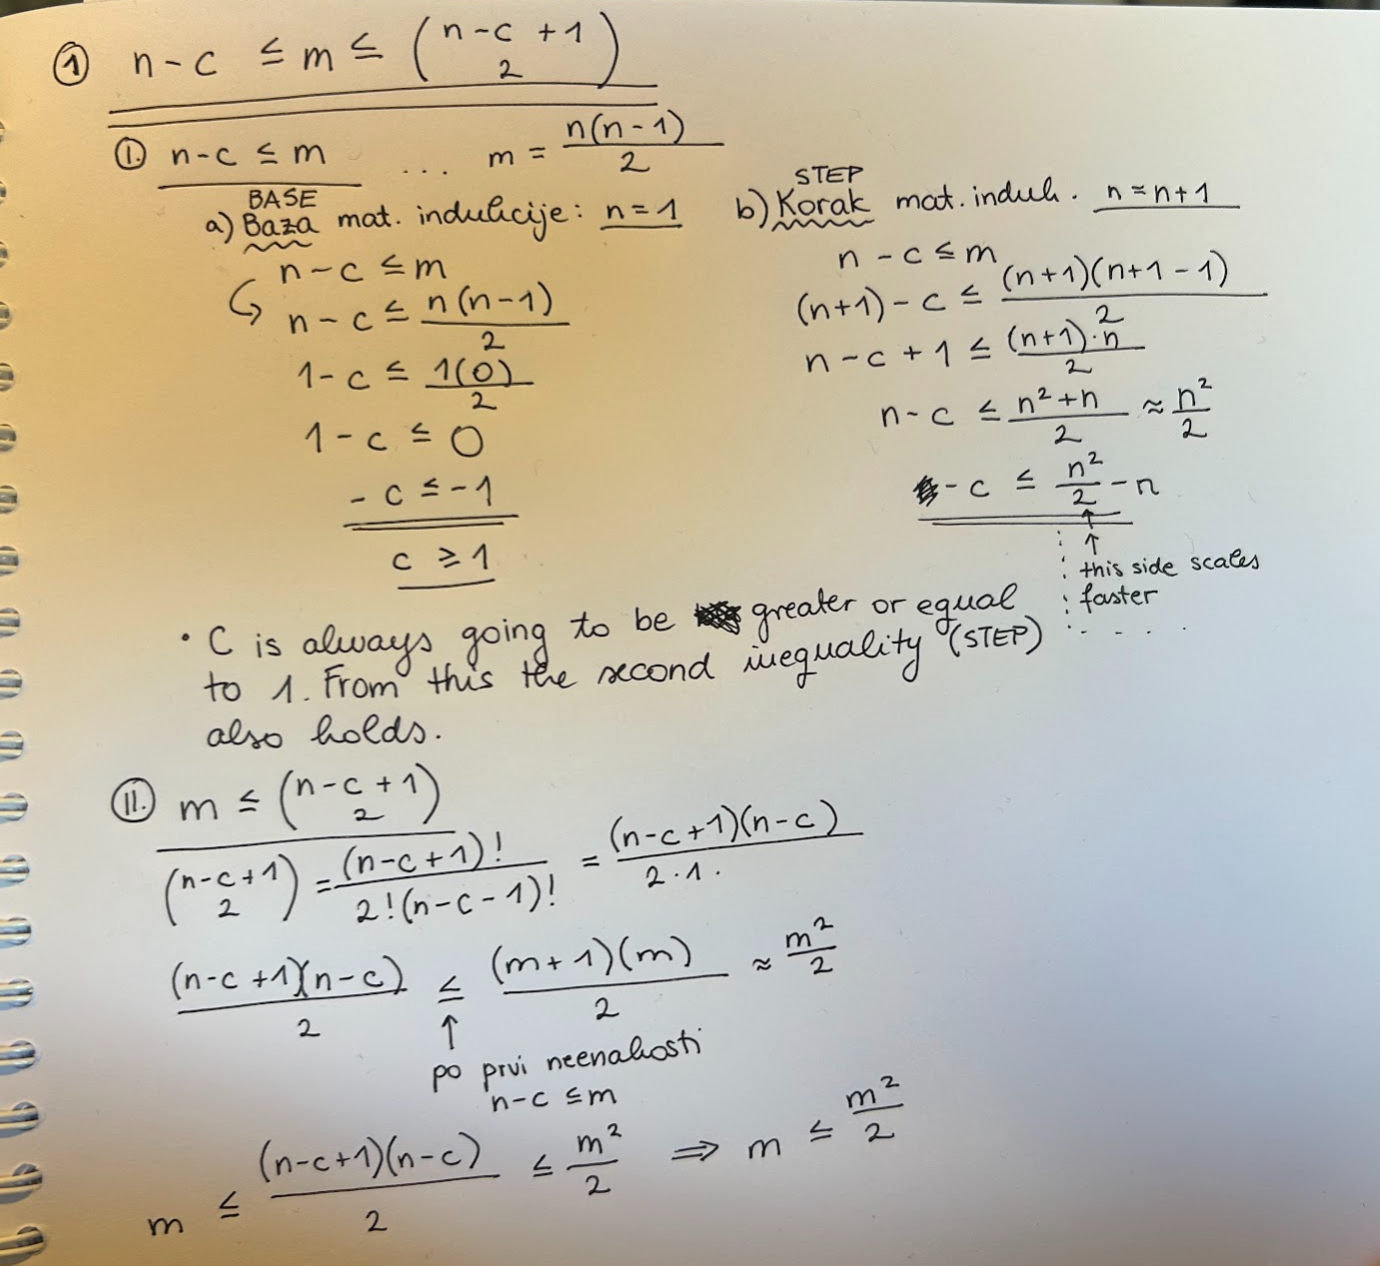 ① n-c ≤ m ≤ (n-c+1 2)
Ⅰ. n-c ≤ m ... m = n(n-1)/2
BASE
a) Baza mat. indukcije: n=1
n-c ≤ m
n-c ≤ n(n-1)/2
1-c ≤ 1(0)/2
1-c ≤ 0
-c ≤ -1
c ≥ 1
STEP
b) Korak mat. induk. n≈n+1
n-c ≤ m
(n+1)-c ≤ (n+1)(n+1-1)/2
n-c+1 ≤ (n+1)·n/2
n-c ≤ n²+n/2 ≈ n²/2
-c ≤ n²/2 - n
this side scales
faster
• C is always going to be greater or equal
to 1. From this the second inequality (STEP)
also holds.
Ⅱ. m ≤ (n-c+1 2)
(n-c+1 2) = (n-c+1)!/2!(n-c-1)! = (n-c+1)(n-c)/2·1.
(n-c+1)(n-c)/2 ≤ (m+1)(m)/2 ≈ m²/2
po prvi neenakosti
n-c ≤ m
m ≤ (n-c+1)(n-c)/2 ≤ m²/2 ⇒ m ≤ m²/2